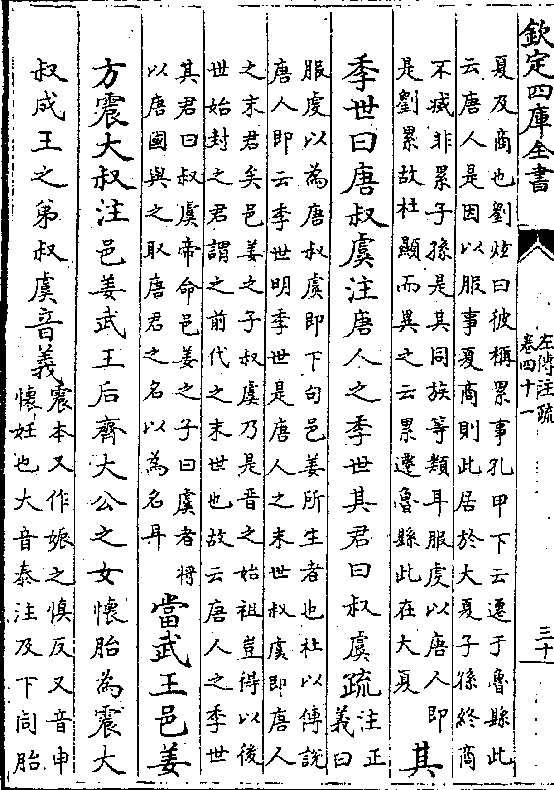 欽定四庫全書
左傳注疏
卷四十一
三十
夏及商也劉炫曰彼稱累事孔甲下云遷于魯縣此
云唐人是因以服事夏商則此居於大夏子孫終商
不滅非累子孫是其同族等類耳服虔以唐人即
是劉累故杜顯而異之云累遷魯縣此在大夏
其
季世曰唐叔虞注唐人之季世其君曰叔虞疏
注正
義曰
服虔以為唐叔虞即下句邑姜所生者也杜以傳說
唐人即云季世明季世是唐人之末世叔虞即唐人
之末君矣邑姜之子叔虞乃是晉之始祖豈得以後
世始封之君謂之前代之末世也故云唐人之季世
其君曰叔虞帝命邑姜之子曰虞者將
以唐國與之取唐君之名以為名耳
當武王邑姜
方震大叔注邑姜武王后齊大公之女懷胎為震大
叔成王之弟叔虞音義
震本又作娠之慎反又音申
懷妊也大音泰注及下同胎